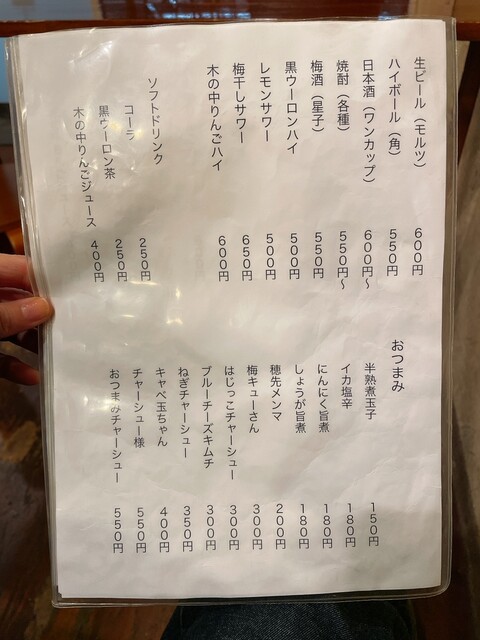 生ビール（モルツ） 600円
ハイボール（角） 550円
日本酒（ワンカップ） 600円～
焼酎（各種） 550円～
梅酒（星子） 550円
黒ウーロンハイ 500円
レモンサワー 500円
梅干しサワー 650円
木の中りんごハイ 600円
ソフトドリンク
コーラ 250円
黒ウーロン茶 250円
木の中りんごジュース 400円
おつまみ
半熟煮玉子 150円
イカ塩辛 180円
にんにく旨煮 180円
しょうが旨煮 180円
穂先メンマ 200円
梅キューさん 300円
はじっこチャーシュー 300円
ブルーチーズキムチ 300円
ねぎチャーシュー 350円
キャベ玉ちゃん 400円
チャーシュー様 550円
おつまみチャーシュー 550円